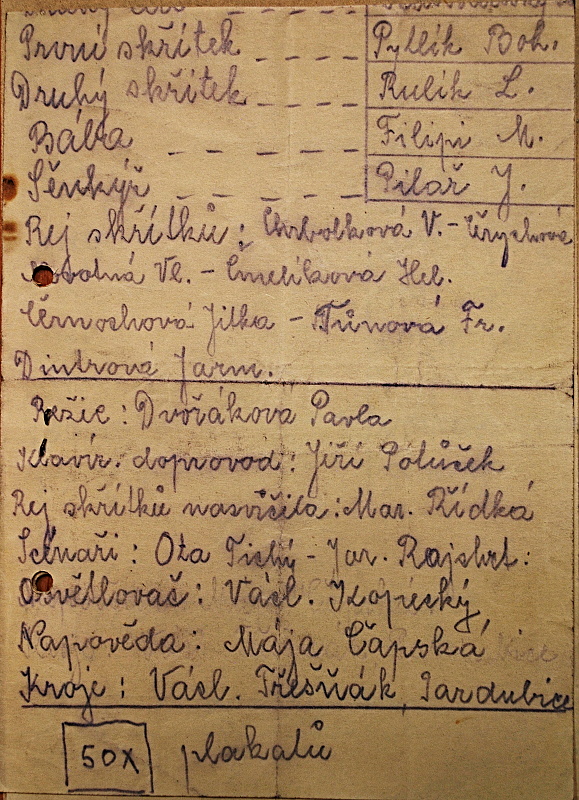 První skřítek _ _ _ _ Pyllík Boh.
Druhý skřítek _ _ _ _ Rulík L.
Bába _ _ _ _ _ Filipi M.
Šenkýř _ _ _ _ _ Pilař J.
Rej skřítků: Chrbolková V. -
Novotná Vl. - Čmelíková Hel.
Černochová Jitka - Tůnová Fr.
Dintrová Jarm.
Režie: Dvořákova Pavla
Klavír. doprovod: Jiří Polůček
Rej skřítků nasvičila: Mar. Řídká
Scénaři: Ota Tichý - Jar.
Osvětlovač: Václ. Kopecký
Napověda: Mája Čapská
Kroje: Václ. Třešňák, Pardubice
50x plakatů